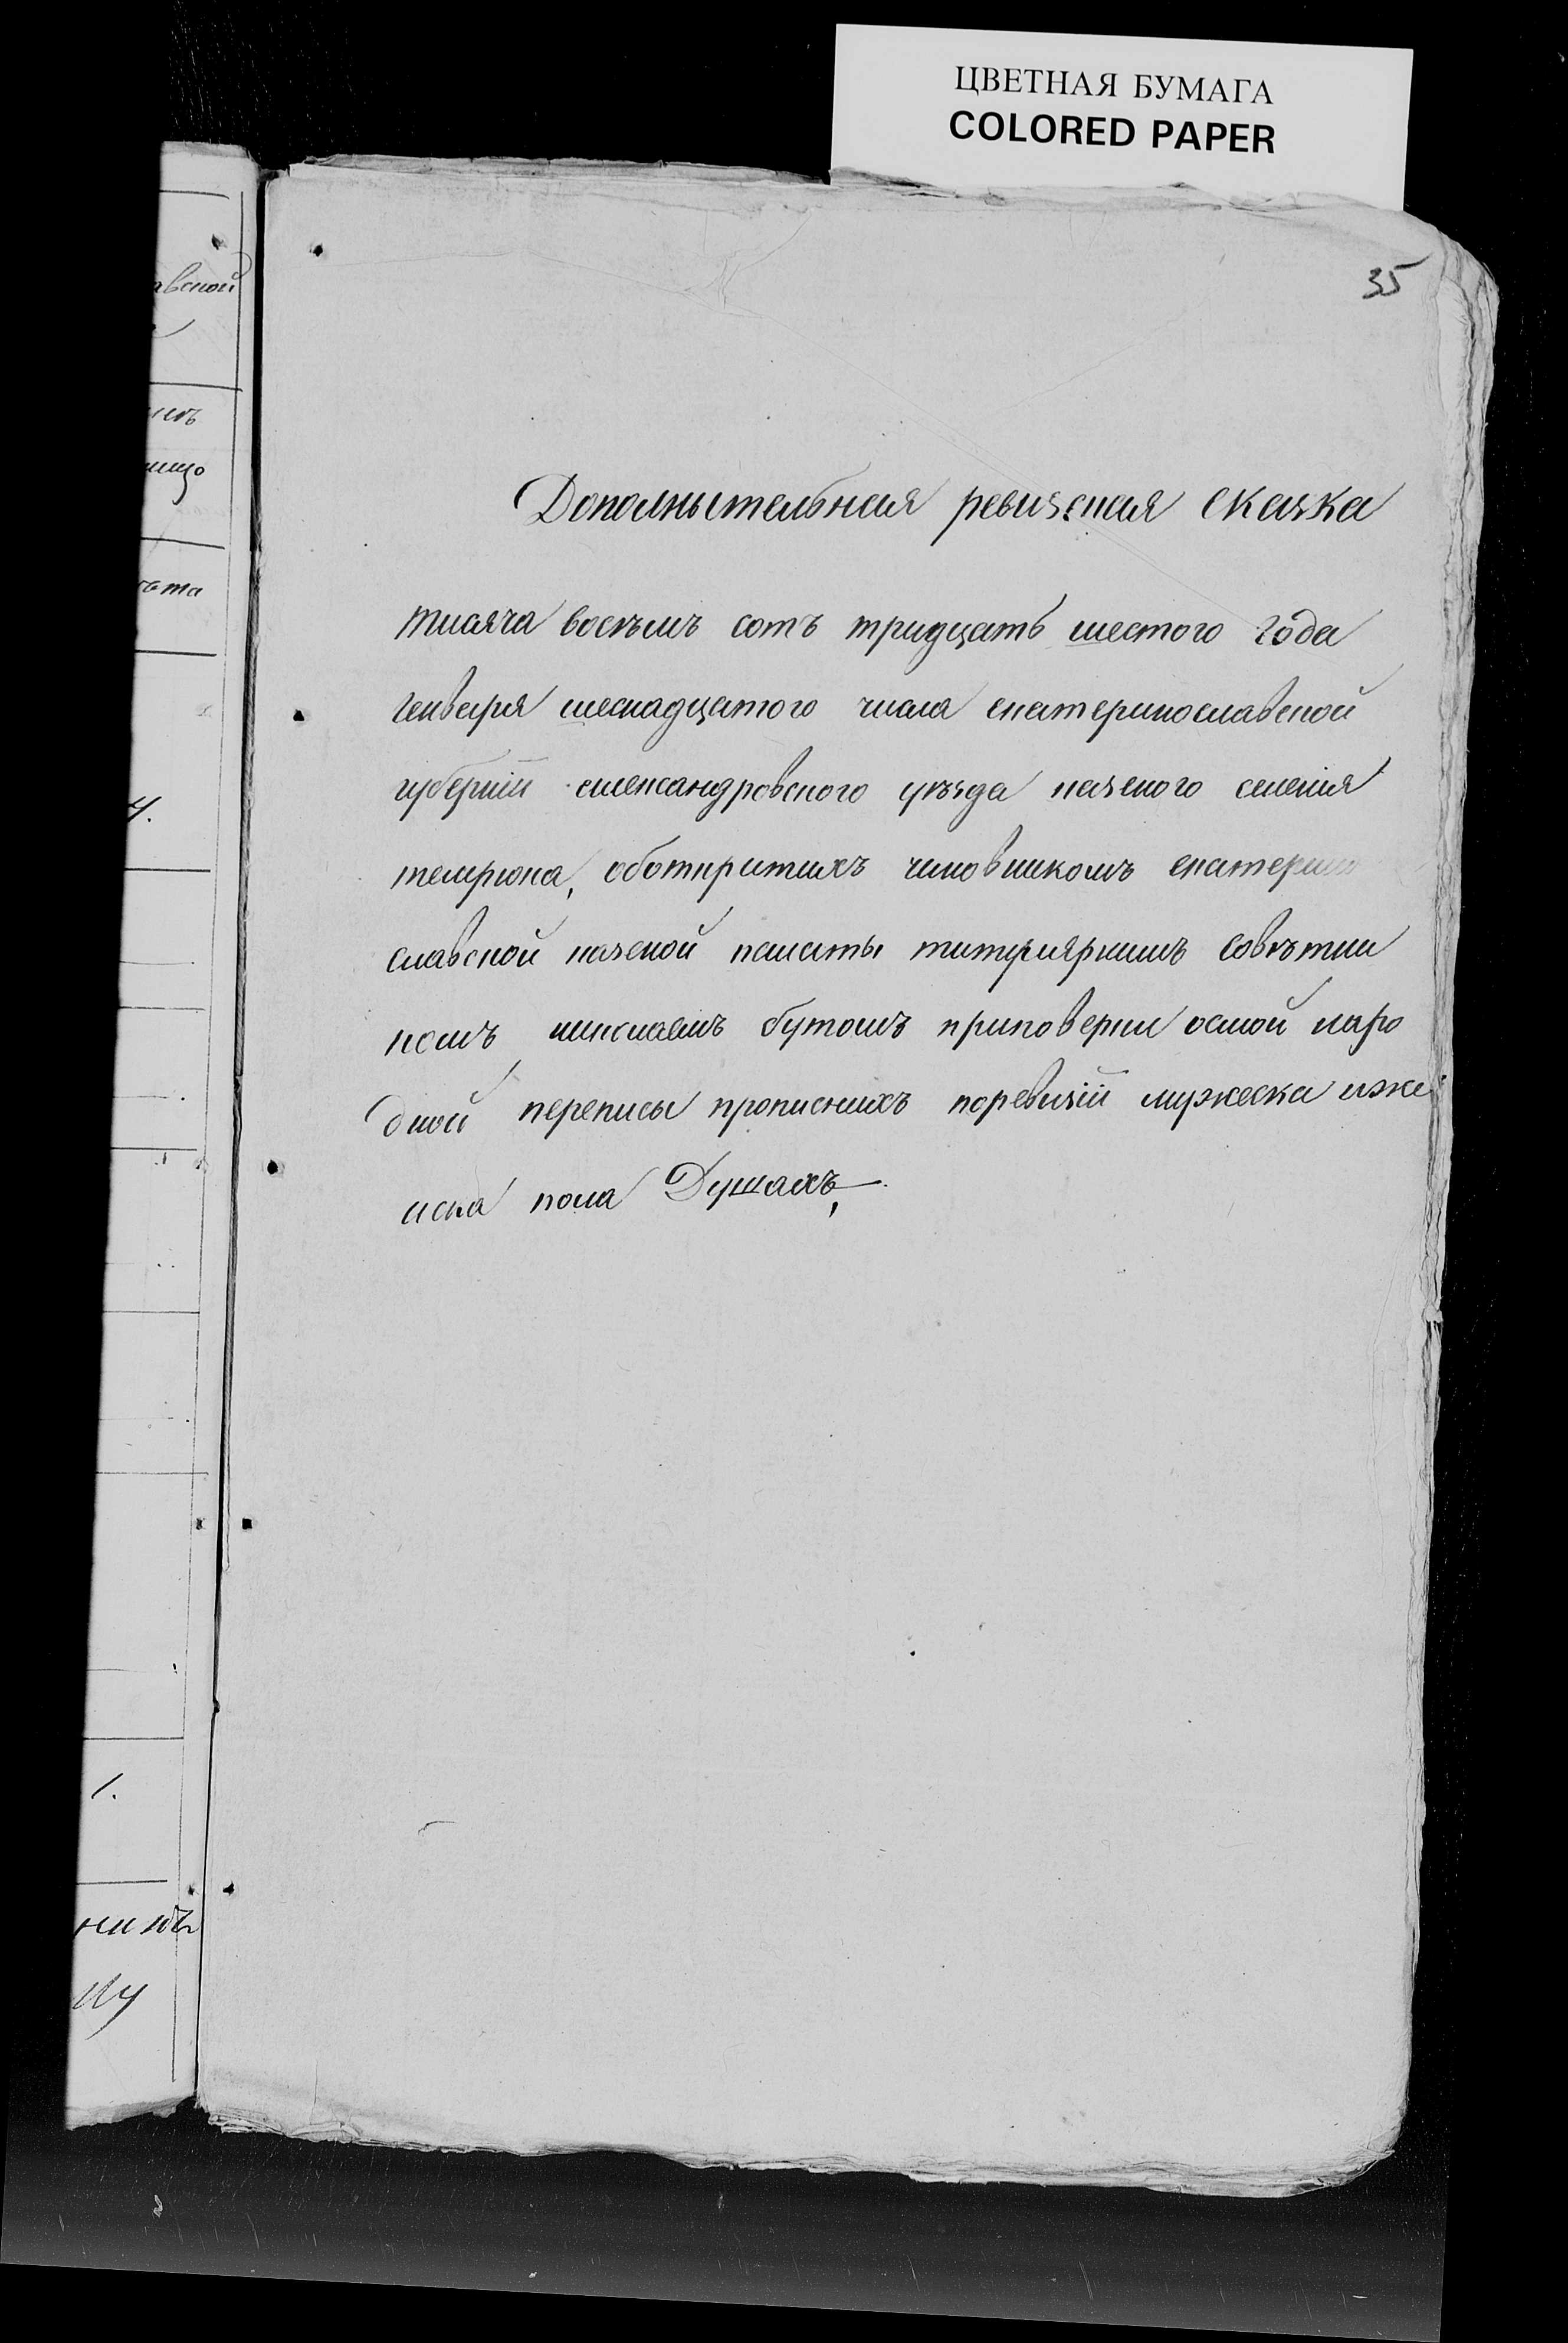 ЦВЕТНАЯ БУМАГА
COLORED PAPER
35
Дополнытельная ревизская сказка
тисяча восѣмъ сотъ тридцать шестого года
генваря шеснадцатого числа екатеринославской
губерніи александровского уѣзда казеного селенія
темрюка, оботкритихъ чиновникомъ екатерино
славской казеной палаты титуляркимъ совѣтни
комъ николаемъ бутомъ приповерки осмой наро
дной переписы прописнихъ поревизіи мужеска иже
нска пола Душахъ,
авской
нъ
ищо
ѣта
4.
1.
ну